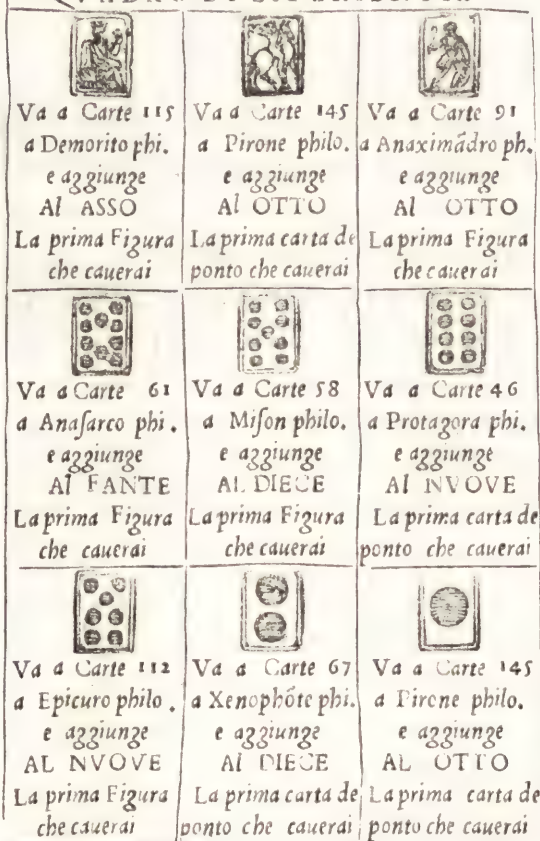 Va a Carte 115
a Demorito phi.
e aggiunge
Al ASSO
La prima Figura
che cauerai
Va a Carte 145
a Pirone philo.
e aggiunge
Al OTTO
La prima carta de
ponto che cauerai
Va a Carte 91
a Anaximãdro ph.
e aggiunge
Al OTTO
La prima Figura
che cauerai
Va a Carte 61
a Anaſarco phi.
e aggiunge
Al FANTE
La prima Figura
che cauerai
Va a Carte 58
a Miſon philo.
e aggiunge
AL DIECE
La prima Figura
che cauerai
Va a Carte 46
a Protagora phi.
e aggiunge
Al NVOVE
La prima carta de
ponto che cauerai
Va a Carte 112
a Epicuro philo.
e aggiunge
AL NVOVE
La prima Figura
che cauerai
Va a Carte 67
a Xenophõte phi.
e aggiunge
Al DIECE
La prima carta de
ponto che cauerai
Va a Carte 145
a Pirone philo.
e aggiunge
AL OTTO
La prima carta de
ponto che cauerai